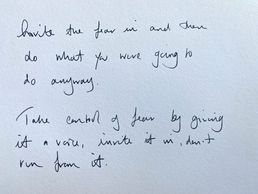 Invite the fear in and then
do what you were going to
do anyway.
Take control of fear by giving
it a voice, invite it in, don't
run from it.